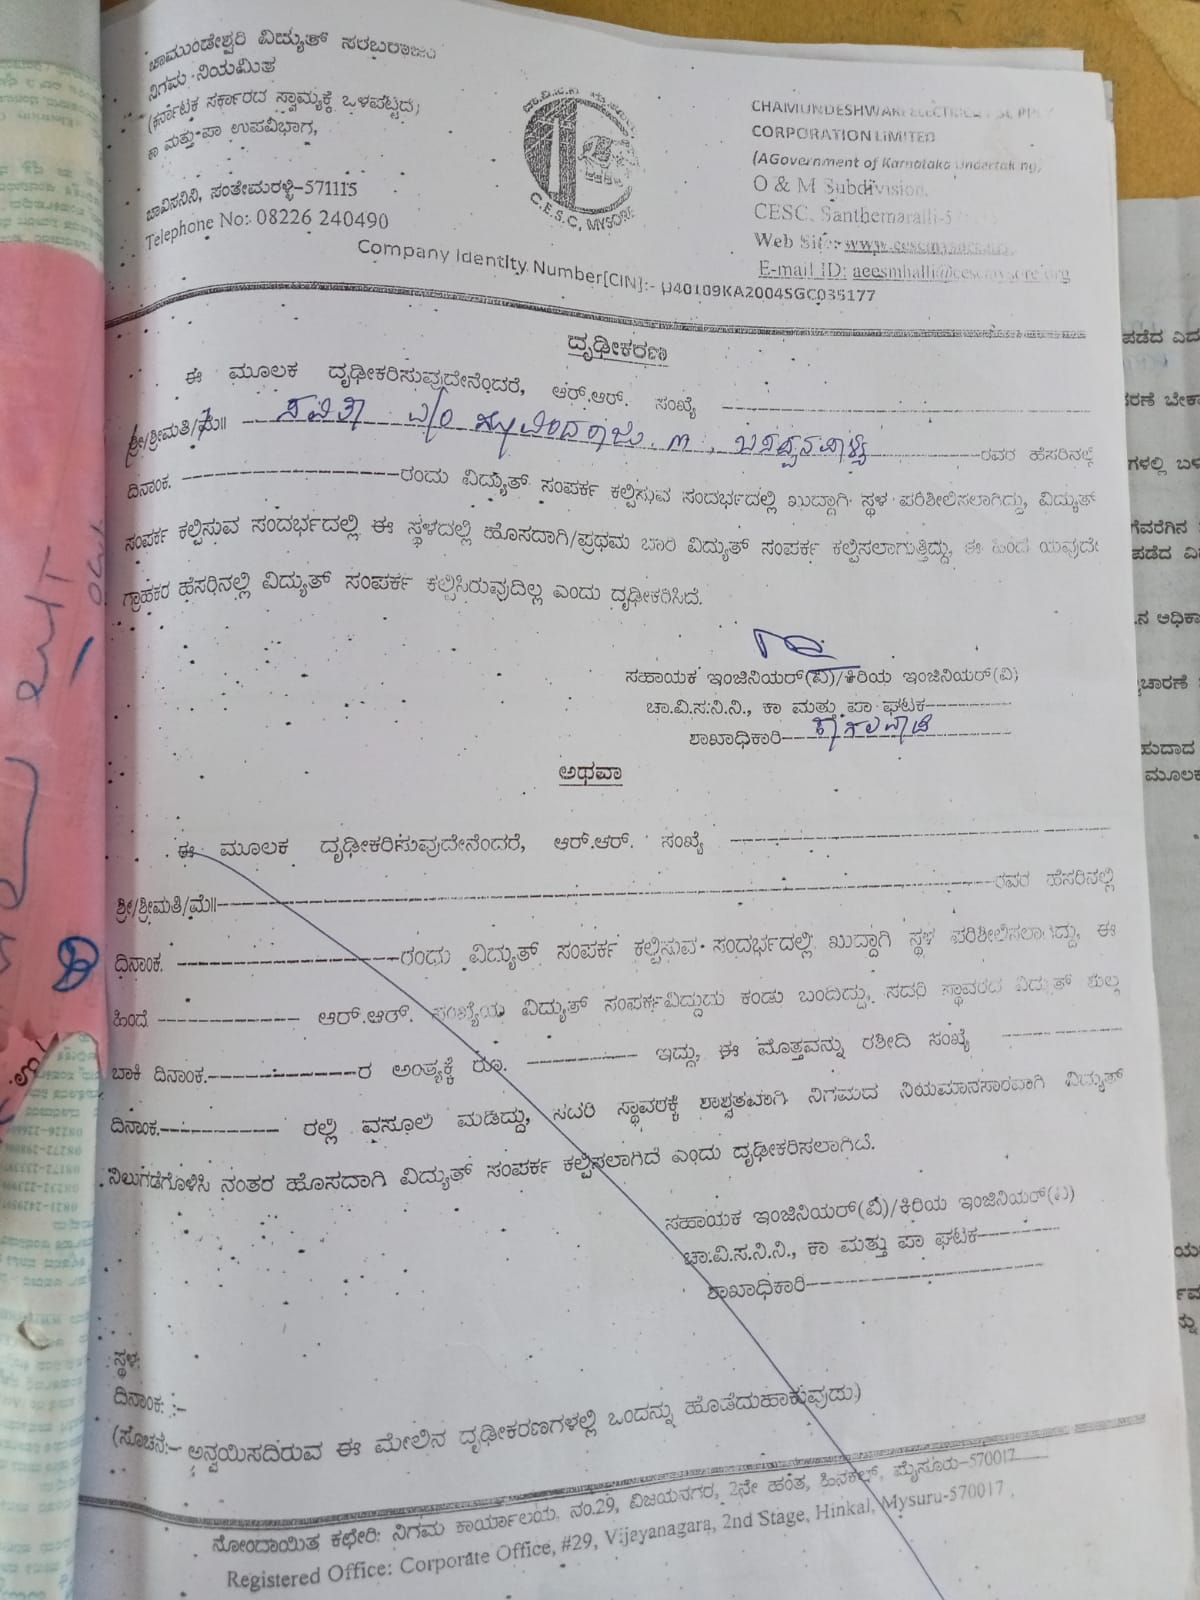 ಚಾಮುಂಡೇಶ್ವರಿ ವಿದ್ಯುತ್ ಸರಬರಾಜು
ನಿಗಮ ನಿಯಮಿತ
(ಕರ್ನಾಟಕ ಸರ್ಕಾರದ ಸ್ವಾಮ್ಯಕ್ಕೆ ಒಳಪಟ್ಟಿದೆ)
ಕಾ ಮತ್ತು ಪಾ ಉಪವಿಭಾಗ,
ಚಾವಿಸನಿನಿ, ಸಂತೇಮರಳ್ಳಿ-571115
Telephone No: 08226 240490
C.E.S.C, MYSORE
CHAMUNDESHWARI
CORPORATION LIMITED
(AGovernment of Karnataka Undertaking)
O & M Subdivision,
CESC, Santhemaralli-5
Web Site:-www.cescmysore.org
E-mail ID: aeesmhalli@cescmysore.org
Company Identity Number[CIN]:- U40109KA2004SGC035177
ದೃಢೀಕರಣ
ಈ ಮೂಲಕ ದೃಢೀಕರಿಸುವುದೇನೆಂದರೆ, ಆರ್.ಆರ್. ಸಂಖ್ಯೆ
ಶ್ರೀ/ಶ್ರೀಮತಿ/ಮೆ॥ ಸವಿತಾ ರವರ ಹೆಸರಿನಲ್ಲಿ
ದಿನಾಂಕ. ರಂದು ವಿದ್ಯುತ್ ಸಂಪರ್ಕ ಕಲ್ಪಿಸುವ ಸಂದರ್ಭದಲ್ಲಿ ಖುದ್ದಾಗಿ ಸ್ಥಳ ಪರಿಶೀಲಿಸಲಾಗಿದ್ದು, ವಿದ್ಯುತ್
ಸಂಪರ್ಕ ಕಲ್ಪಿಸುವ ಸಂದರ್ಭದಲ್ಲಿ ಈ ಸ್ಥಳದಲ್ಲಿ ಹೊಸದಾಗಿ/ಪ್ರಥಮ ಬಾರಿ ವಿದ್ಯುತ್ ಸಂಪರ್ಕ ಕಲ್ಪಿಸಲಾಗುತ್ತಿದ್ದು, ಈ ಹಿಂದೆ ಯಾವುದೇ
ಗ್ರಾಹಕರ ಹೆಸರಿನಲ್ಲಿ ವಿದ್ಯುತ್ ಸಂಪರ್ಕ ಕಲ್ಪಿಸಿರುವುದಿಲ್ಲ ಎಂದು ದೃಢೀಕರಿಸಿದೆ.
ಸಹಾಯಕ ಇಂಜಿನಿಯರ್(ವಿ)/ಕಿರಿಯ ಇಂಜಿನಿಯರ್(ವಿ)
ಚಾ.ವಿ.ಸ.ನಿ.ನಿ., ಕಾ ಮತ್ತು ಪಾ ಘಟಕ
ಶಾಖಾಧಿಕಾರಿ
ಅಥವಾ
ಈ ಮೂಲಕ ದೃಢೀಕರಿಸುವುದೇನೆಂದರೆ, ಆರ್.ಆರ್. ಸಂಖ್ಯೆ
ಶ್ರೀ/ಶ್ರೀಮತಿ/ಮೆ॥ ರವರ ಹೆಸರಿನಲ್ಲಿ
ದಿನಾಂಕ. ರಂದು ವಿದ್ಯುತ್ ಸಂಪರ್ಕ ಕಲ್ಪಿಸುವ ಸಂದರ್ಭದಲ್ಲಿ ಖುದ್ದಾಗಿ ಸ್ಥಳ ಪರಿಶೀಲಿಸಲಾಗಿದ್ದು, ಈ
ಹಿಂದೆ ಆರ್.ಆರ್. ಸಂಖ್ಯೆಯ ವಿದ್ಯುತ್ ಸಂಪರ್ಕವಿದ್ದುದು ಕಂಡು ಬಂದಿದ್ದು, ಸದರಿ ಸ್ಥಾವರದ ವಿದ್ಯುತ್ ಶುಲ್ಕ
ಬಾಕಿ ದಿನಾಂಕ. ರ ಅಂತ್ಯಕ್ಕೆ ರೂ. ಇದ್ದು, ಈ ಮೊತ್ತವನ್ನು ರಶೀದಿ ಸಂಖ್ಯೆ
ದಿನಾಂಕ. ರಲ್ಲಿ ವಸೂಲಿ ಮಡಿದ್ದು, ಸದರಿ ಸ್ಥಾವರಕ್ಕೆ ಶಾಶ್ವತವಾಗಿ ನಿಗಮದ ನಿಯಮಾನಸಾರವಾಗಿ ವಿದ್ಯುತ್
ನಿಲುಗಡೆಗೊಳಿಸಿ ನಂತರ ಹೊಸದಾಗಿ ವಿದ್ಯುತ್ ಸಂಪರ್ಕ ಕಲ್ಪಿಸಲಾಗಿದೆ ಎಂದು ದೃಢೀಕರಿಸಲಾಗಿದೆ.
ಸಹಾಯಕ ಇಂಜಿನಿಯರ್(ವಿ)/ಕಿರಿಯ ಇಂಜಿನಿಯರ್(ವಿ)
ಚಾ.ವಿ.ಸ.ನಿ.ನಿ., ಕಾ ಮತ್ತು ಪಾ ಘಟಕ
ಶಾಖಾಧಿಕಾರಿ
ಸ್ಥಳ:
ದಿನಾಂಕ: :-
(ಸೂಚನೆ:- ಅನ್ವಯಿಸದಿರುವ ಈ ಮೇಲಿನ ದೃಢೀಕರಣಗಳಲ್ಲಿ ಒಂದನ್ನು ಹೊಡೆದುಹಾಕುವುದು)
ನೋಂದಾಯಿತ ಕಛೇರಿ: ನಿಗಮ ಕಾರ್ಯಾಲಯ, ನಂ.29, ವಿಜಯನಗರ, 2ನೇ ಹಂತ, ಹಿನಕಲ್, ಮೈಸೂರು-570017
Registered Office: Corporate Office, #29, Vijayanagara, 2nd Stage, Hinkal, Mysuru-570017